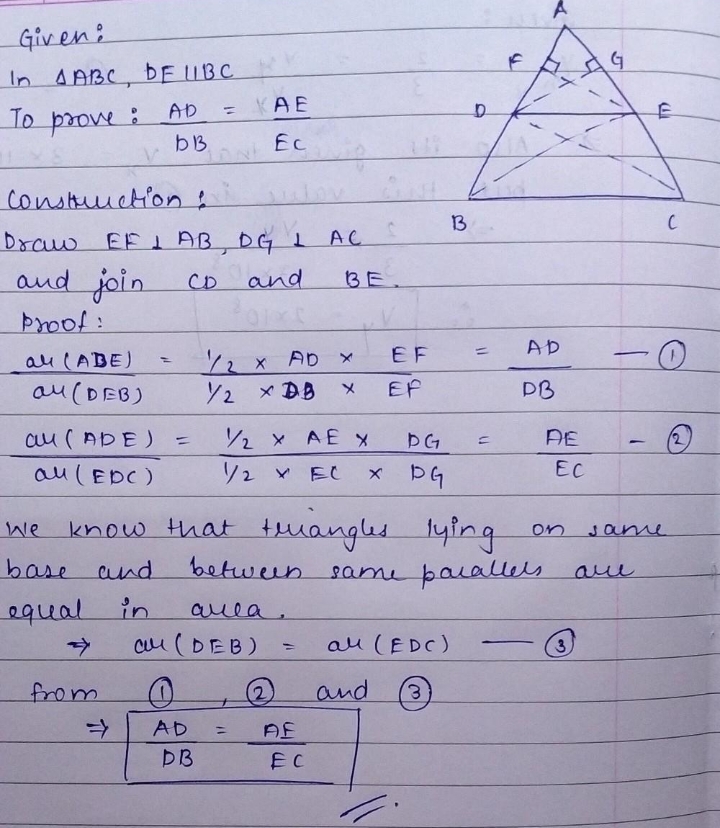 Given:
In ΔABC, DE ∥ BC
To prove: AD/DB = AE/EC
Construction:
Draw EF ⊥ AB, DG ⊥ AC
and join CD and BE.
Proof:
ar(ADE)/ar(DEB) = (1/2 × AD × EF)/(1/2 × DB × EF) = AD/DB — ①
ar(ADE)/ar(EDC) = (1/2 × AE × DG)/(1/2 × EC × DG) = AE/EC - ②
We know that triangles lying on same
base and between same parallels are
equal in area.
⇒ ar(DEB) = ar(EDC) — ③
from ①, ② and ③
⇒ AD/DB = AE/EC
A
F G
D E
B C